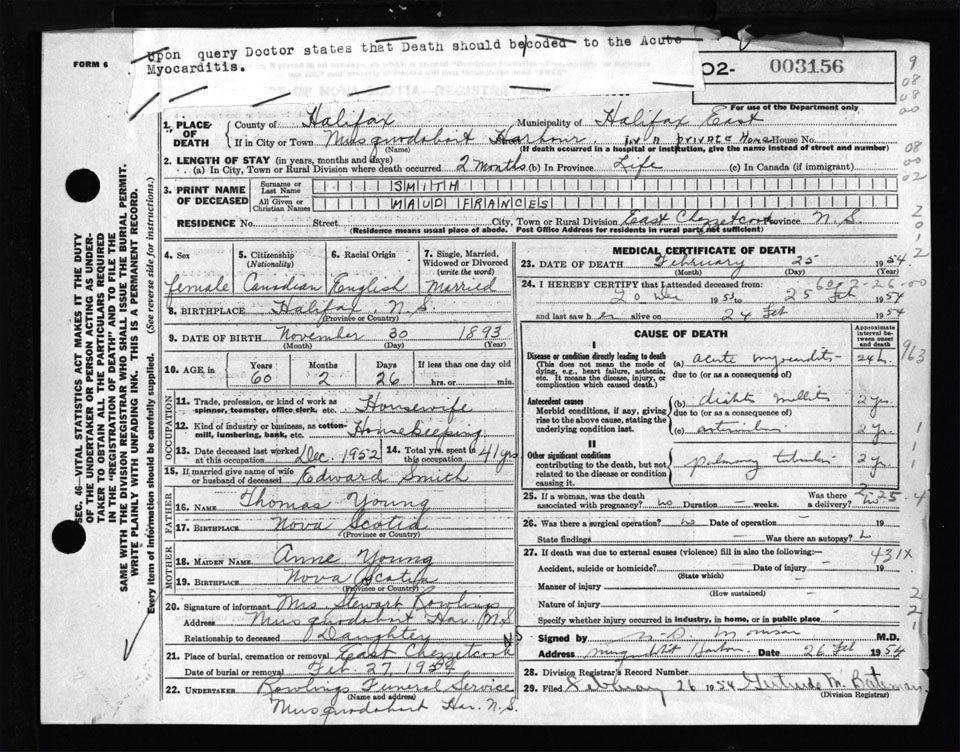 FORM 6
Upon query Doctor states that Death should be coded to the Acute
Myocarditis.
02- 003156
For use of the Department only
1. PLACE OF DEATH
County of Halifax Municipality of Halifax East
If in City or Town Musquodoboit Harbour in a private Home House No.
(Name) (If death occurred in a hospital or institution, give the name instead of street and number)
2. LENGTH OF STAY (in years, months and days)
(a) In City, Town or Rural Division where death occurred 2 Months (b) In Province Life (c) In Canada (if immigrant)
3. PRINT NAME OF DECEASED
Surname or Last Name SMITH
All Given or Christian Names MAUD FRANCES
RESIDENCE No. Street City, Town or Rural Division East Chezzetcook Province N.S.
(Residence means usual place of abode. Post Office Address for residents in rural parts not sufficient)
4. Sex 5. Citizenship (Nationality) 6. Racial Origin 7. Single, Married, Widowed or Divorced (write the word)
female Canadian English Married
8. BIRTHPLACE Halifax, N.S.
(Province or Country)
9. DATE OF BIRTH November 30 1893
(Month) (Day) (Year)
10. AGE in Years Months Days If less than one day old
60 2 26 hrs. or min.
OCCUPATION
11. Trade, profession, or kind of work as spinner, teamster, office clerk, etc. Housewife
12. Kind of industry or business, as cotton-mill, lumbering, bank, etc. House Keeping
13. Date deceased last worked at this occupation Dec. 1952 14. Total yrs. spent in this occupation 41 yrs
15. If married give name of wife or husband of deceased Edward Smith
FATHER
16. NAME Thomas Young
17. BIRTHPLACE Nova Scotia
(Province or Country)
MOTHER
18. MAIDEN NAME Anne Young
19. BIRTHPLACE Nova Scotia
(Province or Country)
20. Signature of informant Mrs. Stewart Rowlings
Address Musquodoboit Har. N.S.
Relationship to deceased Daughter
21. Place of burial, cremation or removal East Chezzetcook N.S.
Date of burial or removal Feb. 27, 1954
22. UNDERTAKER Rowlings Funeral Service
(Name and address)
Musquodoboit Har. N.S.
MEDICAL CERTIFICATE OF DEATH
23. DATE OF DEATH February 25 1954
(Month) (Day) (Year)
24. I HEREBY CERTIFY that I attended deceased from:
20 Dec 1953 to 25 Feb 1954
and last saw her alive on 24 Feb 1954
CAUSE OF DEATH
Approximate interval between onset and death
I
Disease or condition directly leading to death (a) acute myocarditis 24 h.
(This does not mean the mode of dying, e.g., heart failure, asthenia, etc. It means the disease, injury, or complication which caused death.)
due to (or as a consequence of)
Antecedent causes (b) diabetes mellitis 2 yrs.
Morbid conditions, if any, giving rise to the above cause, stating the underlying condition last.
due to (or as a consequence of)
(c) 2 yrs.
II
Other significant conditions contributing to the death, but not related to the disease or condition causing it.
pulmonary tuberculosis 2 yrs.
25. If a woman, was the death associated with pregnancy? no Duration — weeks. Was there a delivery? no
26. Was there a surgical operation? no Date of operation — 19
State findings — Was there an autopsy?
27. If death was due to external causes (violence) fill in also the following:—
Accident, suicide or homicide? Date of injury 19
(State which)
Manner of injury
(How sustained)
Nature of injury
Specify whether injury occurred in industry, in home, or in public place
Signed by M.D.
Address Musquodoboit Harbour Date 26 Feb 1954
28. Division Registrar's Record Number
29. Filed February 26 1954 Gertrude M. Bateman
(Division Registrar)
963
431X
SEC. 46—VITAL STATISTICS ACT MAKES IT THE DUTY
OF THE UNDERTAKER OR PERSON ACTING AS UNDERTAKER
TO OBTAIN ALL THE PARTICULARS REQUIRED
IN THE "REGISTRATION OF DEATH" AND TO FILE THE
SAME WITH THE DIVISION REGISTRAR WHO SHALL ISSUE THE BURIAL PERMIT.
WRITE PLAINLY WITH UNFADING INK. THIS IS A PERMANENT RECORD.
Every item of information should be carefully supplied. (See reverse side for instructions.)